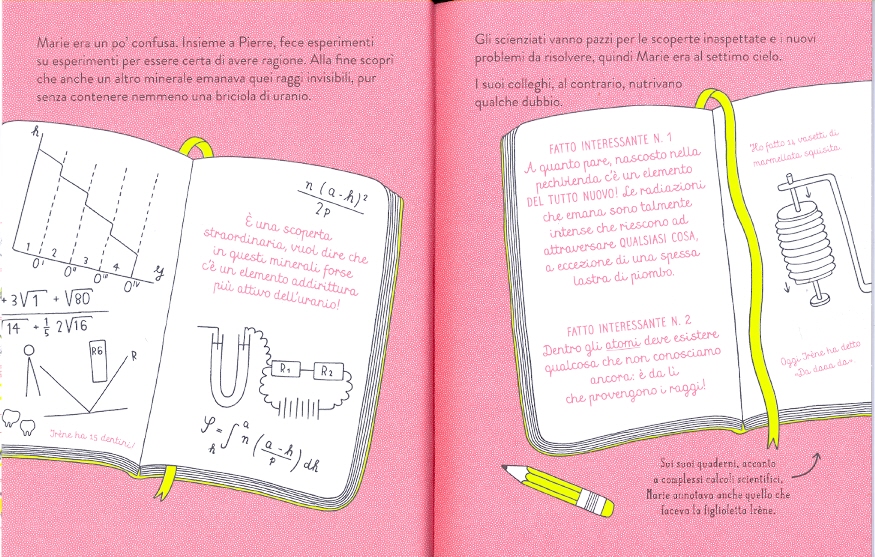 Marie era un po' confusa. Insieme a Pierre, fece esperimenti
su esperimenti per essere certa di avere ragione. Alla fine scoprì
che anche un altro minerale emanava quei raggi invisibili, pur
senza contenere nemmeno una briciola di uranio.
h
1 2 3 4 y
O' O'' O''' O'V
+ 3√1 + √80
√14 + 1/5 2√16
R6
R
Irène ha 15 dentini!
n (a-h)²
2p
È una scoperta
straordinaria, vuol dire che
in questi minerali forse
c'è un elemento addirittura
più attivo dell'uranio!
R1 R2
φ = ∫ a h n (a-h / p) dh
Gli scienziati vanno pazzi per le scoperte inaspettate e i nuovi
problemi da risolvere, quindi Marie era al settimo cielo.
I suoi colleghi, al contrario, nutrivano
qualche dubbio.
FATTO INTERESSANTE N. 1
A quanto pare, nascosto nella
pechblenda c'è un elemento
DEL TUTTO NUOVO! Le radiazioni
che emana sono talmente
intense che riescono ad
attraversare QUALSIASI COSA,
a eccezione di una spessa
lastra di piombo.
FATTO INTERESSANTE N. 2
Dentro gli atomi deve esistere
qualcosa che non conosciamo
ancora: è da lì
che provengono i raggi!
Ho fatto 14 vasetti di
marmellata squisita.
Oggi Irène ha detto
«Da dana da»
Sui suoi quaderni, accanto
a complessi calcoli scientifici,
Marie annotava anche quello che
faceva la figlioletta Irène.